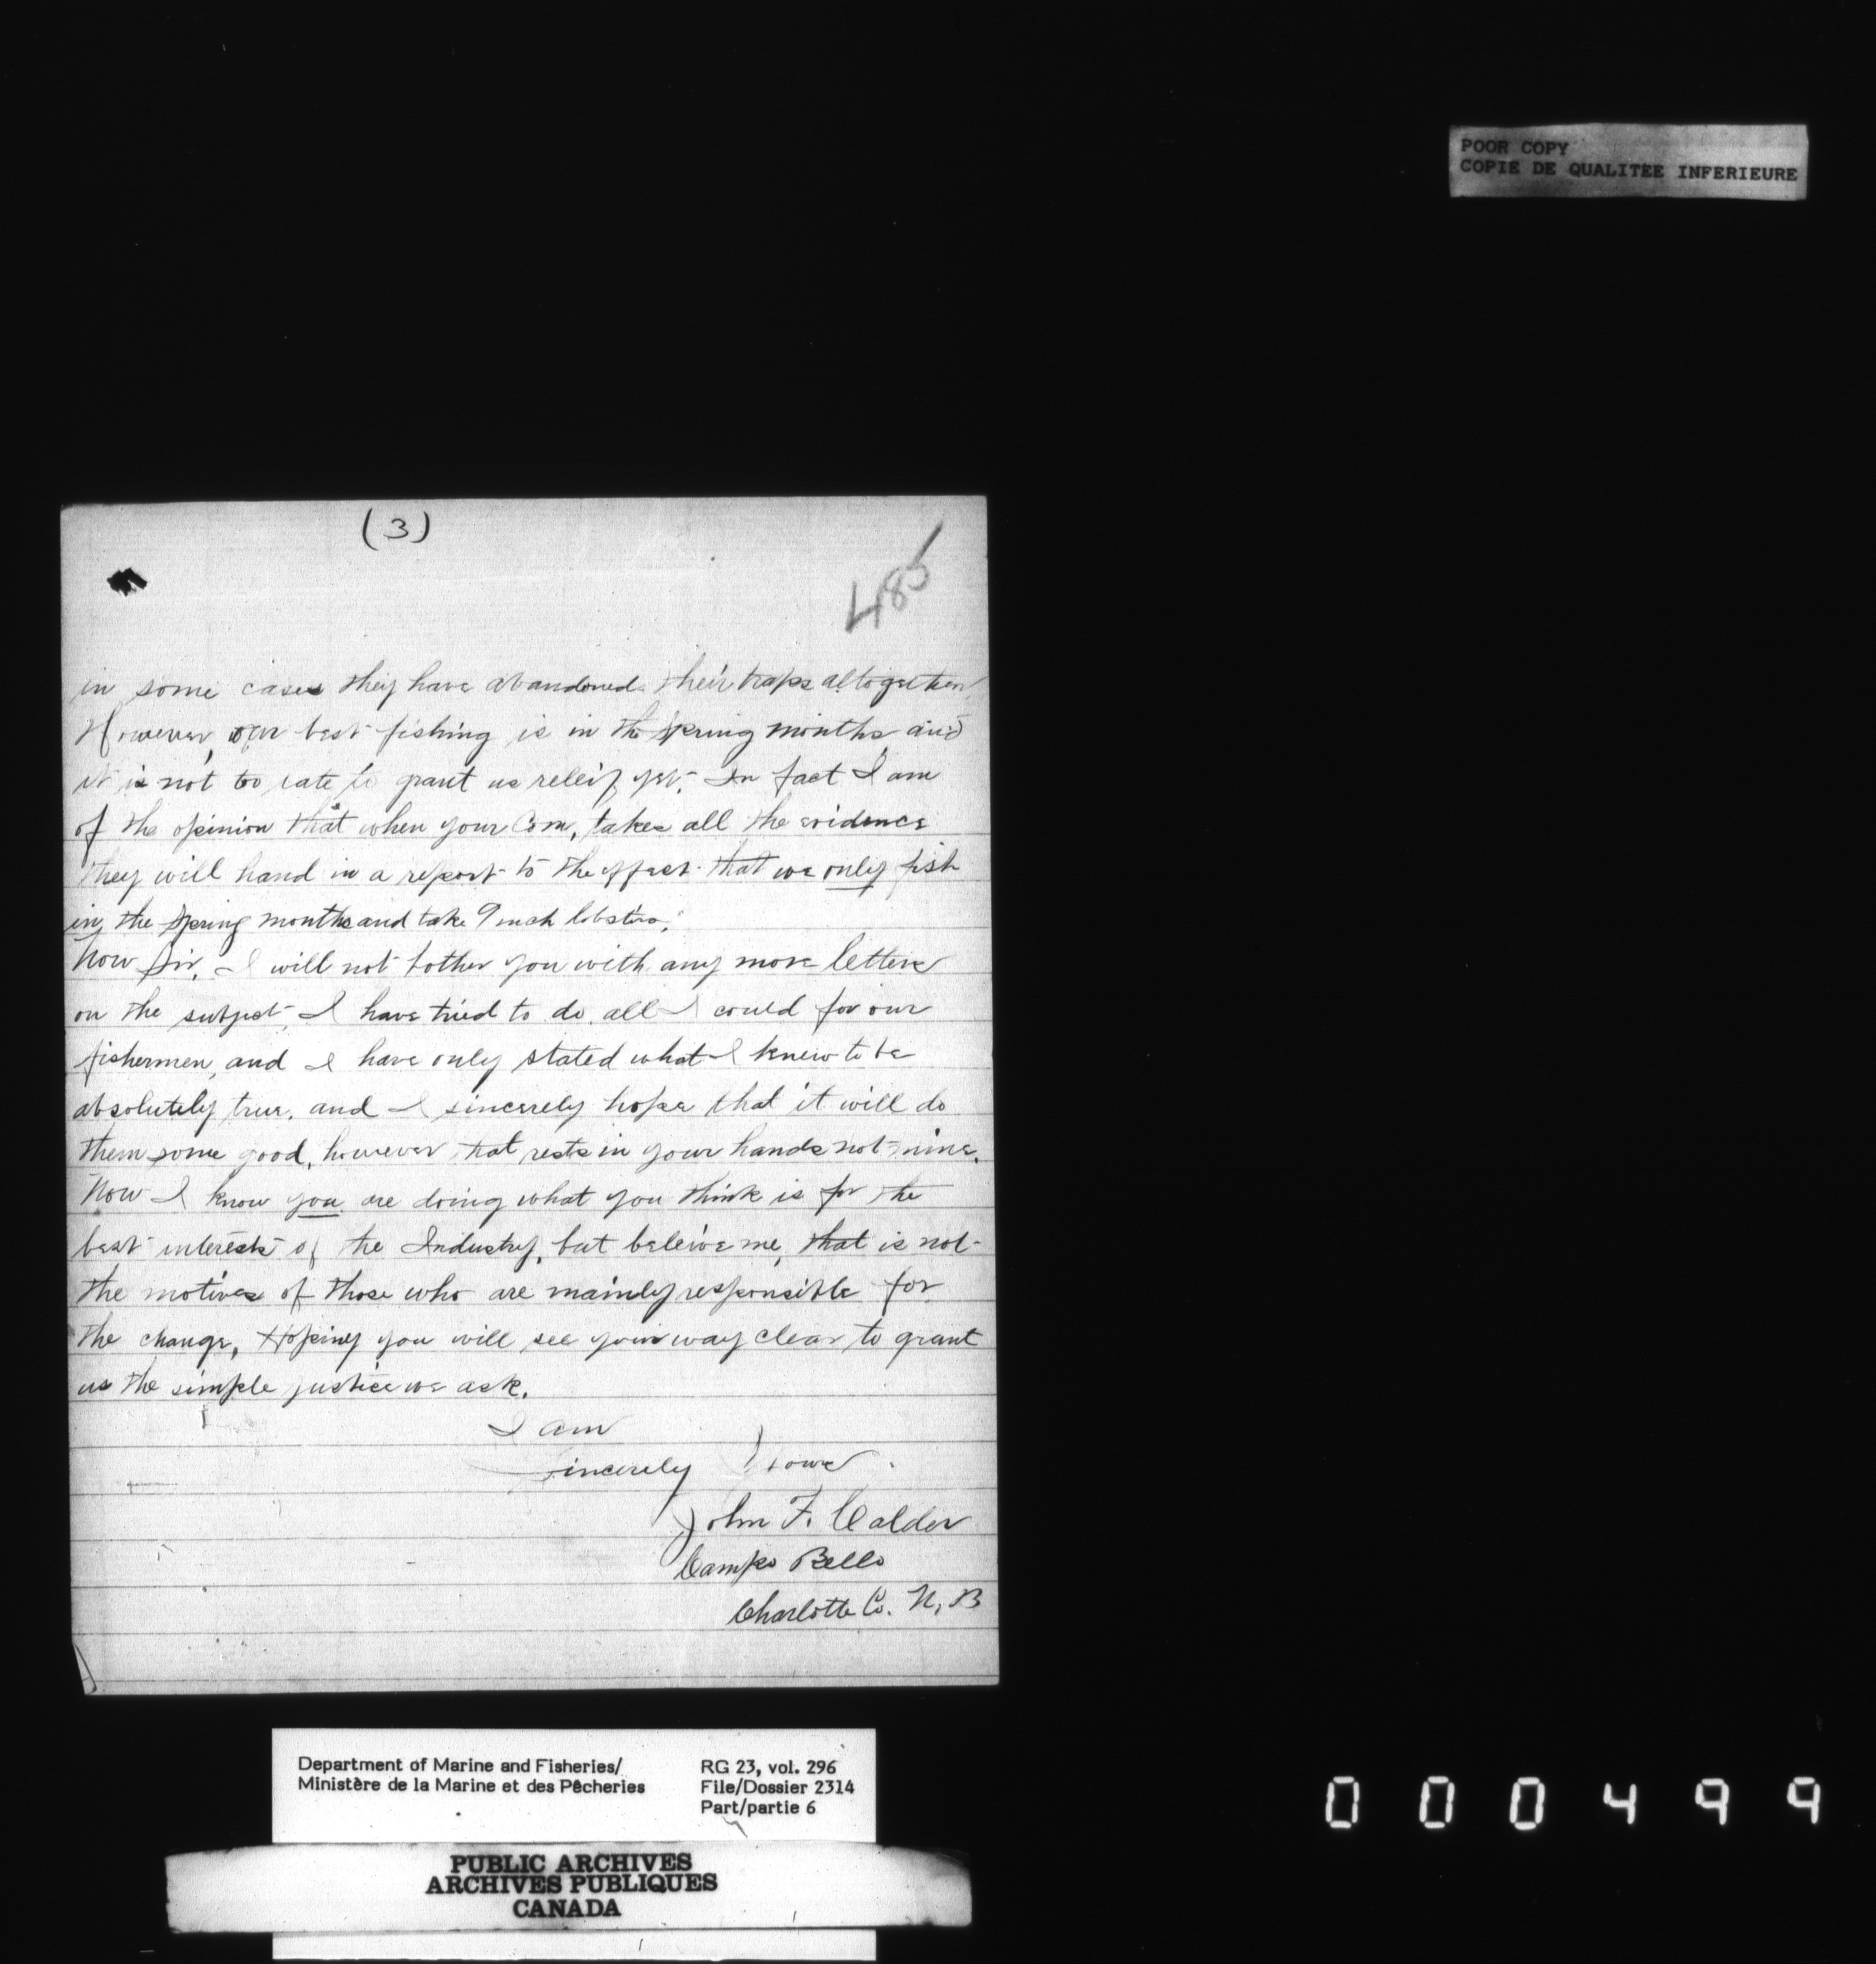 POOR COPY
COPIE DE QUALITEE INFERIEURE
(3)
485
in some cases they have abandoned their traps altogether
However, our best fishing is in the Spring months and
it is not too late to grant us releif yet. In fact I am
of the opinion that when your Com, takes all the evidence
they will hand in a report to the effect that we only fish
in the Spring months and take 9 inch lobsters.
Now Sir, I will not bother you with any more letters
on the subject, I have tried to do all I could for our
fishermen, and I have only stated what I knew to be
absolutely true, and I sincerely hope that it will do
them some good, however that rests in your hands not mine.
Now I know you are doing what you think is for the
best interests of the Industry, but beleive me, that is not
the motives of those who are mainly responsible for
the change, Hoping you will see your way clear to grant
us the simple justice we ask.
I am
Sincerely Yours
John F. Calder
Campo Bello
Charlotte Co. N, B
Department of Marine and Fisheries/
Ministère de la Marine et des Pêcheries
RG 23, vol. 296
File/Dossier 2314
Part/partie 6
PUBLIC ARCHIVES
ARCHIVES PUBLIQUES
CANADA
000499